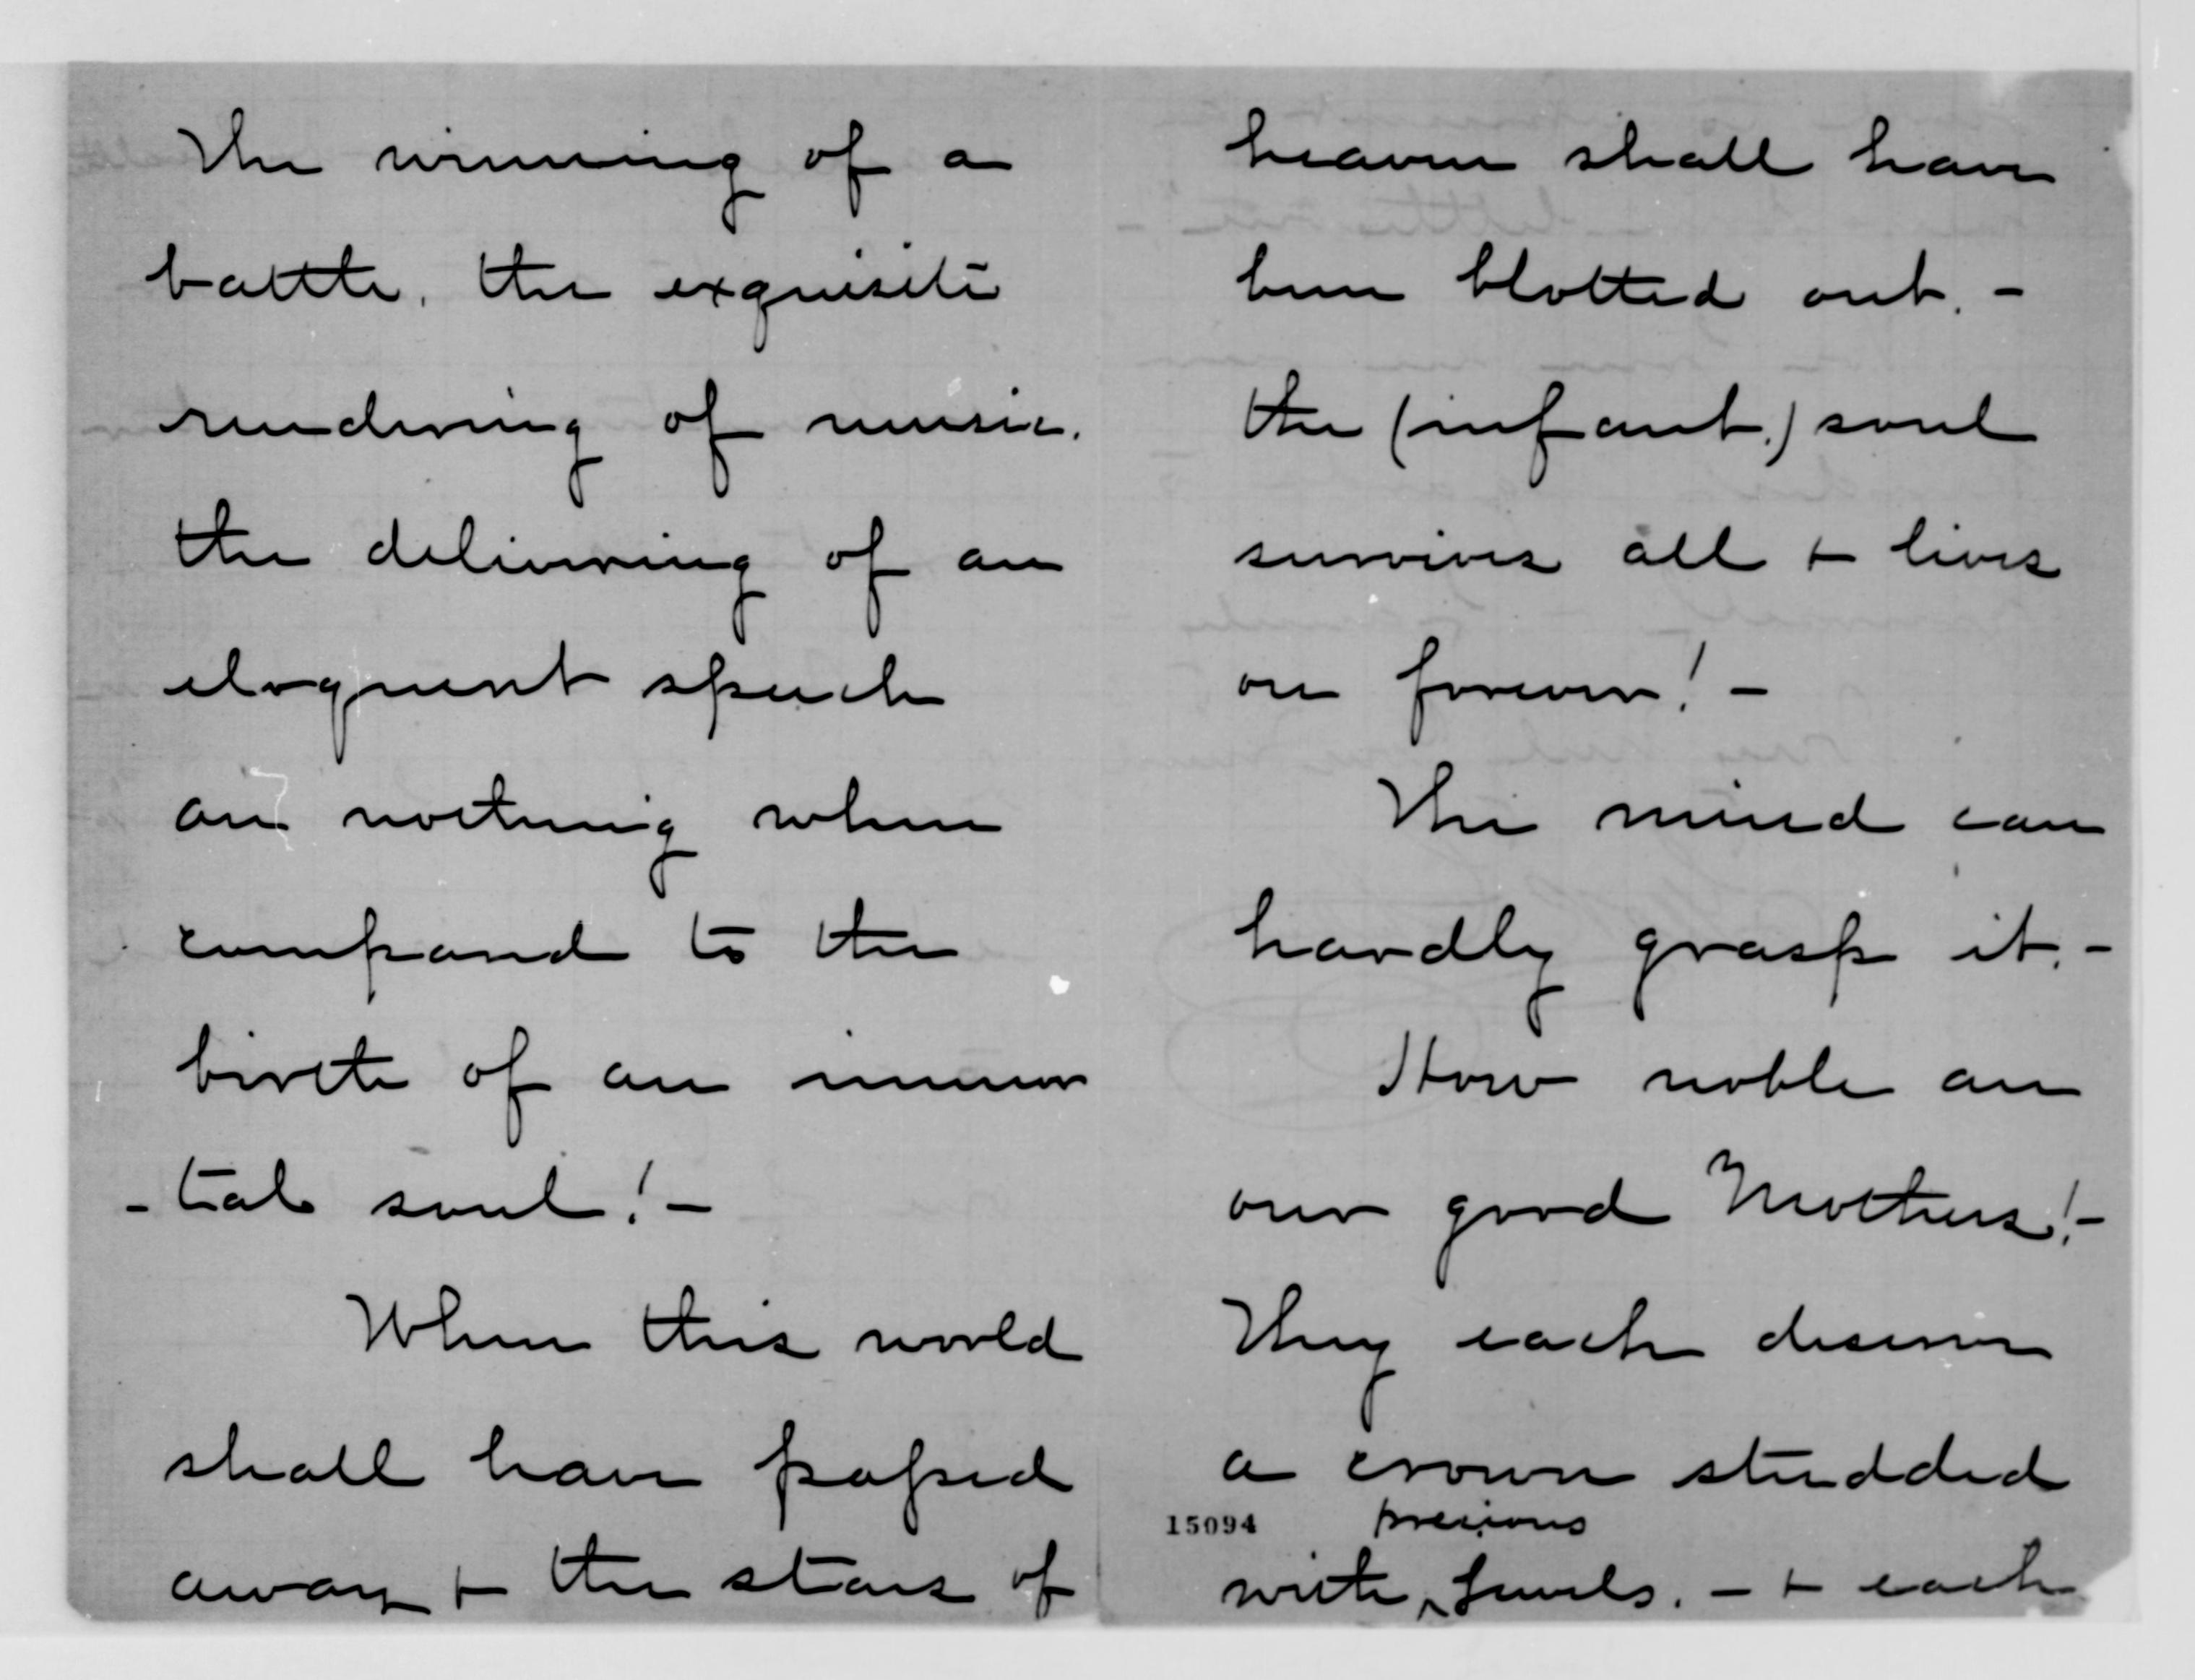 The winning of a
battle, the exquisite
rendering of music,
the delivering of an
eloquent speech
are nothing when
compared to the
birth of an immor
-tal soul! -
When this world
shall have passed
away & the stars of
heaven shall have
been blotted out. -
the (infant.) soul
survives all & lives
on forever! -
The mind can
hardly grasp it. -
How noble are
our good Mothers! -
They each deserve
a crown studded
15094 precious
with ^ Jewels. - & each